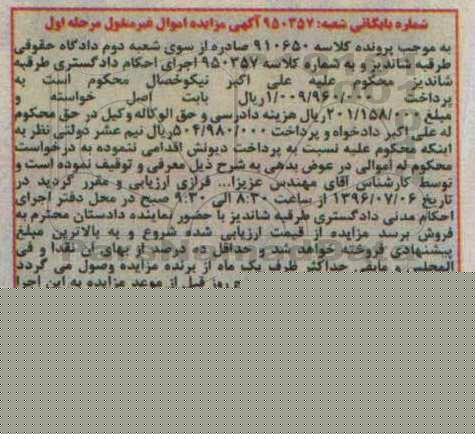 شماره بایگانی شعبه: ۹۵۰۳۵۷ آگهی مزایده اموال غیرمنقول مرحله اول
به موجب پرونده کلاسه ۹۱۰۶۵۰ صادره از سوی شعبه دوم دادگاه حقوقی
طرقبه شاندیز و به شماره کلاسه ۹۵۰۳۵۷ اجرای احکام دادگستری طرقبه
شاندیز محکوم علیه علی اکبر نیکوخصال محکوم است به
پرداخت ۱/۰۰۹/۹۶۰/۰۰۰ریال بابت اصل خواسته و
مبلغ ۲۰۱/۱۵۸/۰۰۰ریال هزینه دادرسی و حق الوکاله وکیل در حق محکوم
له علی اکبر دادخواه و پرداخت ۵۰۴/۹۸۰/۰۰۰ریال نیم عشر دولتی نظر به
اینکه محکوم علیه نسبت به پرداخت دیونش اقدامی ننموده به درخواست
محکوم له اموالی در عوض بدهی به شرح ذیل معرفی و توقیف نموده است و
توسط کارشناس آقای مهندس عزیزا... فرازی ارزیابی و مقرر گردید در
تاریخ ۱۳۹۶/۰۷/۰۶ از ساعت ۸:۳۰ الی ۹:۳۰ صبح در محل دفتر اجرای
احکام مدنی دادگستری طرقبه شاندیز با حضور نماینده دادستان محترم به
فروش برسد مزایده از قیمت ارزیابی شده شروع و به بالاترین مبلغ
پیشنهادی فروخته خواهد شد و حداقل ده درصد از بهای آن نقدا و فی
المجلس و مابقی حداکثر ظرف یک ماه از برنده مزایده وصول می گردد
روز قبل از موعد مزایده به این اجرا